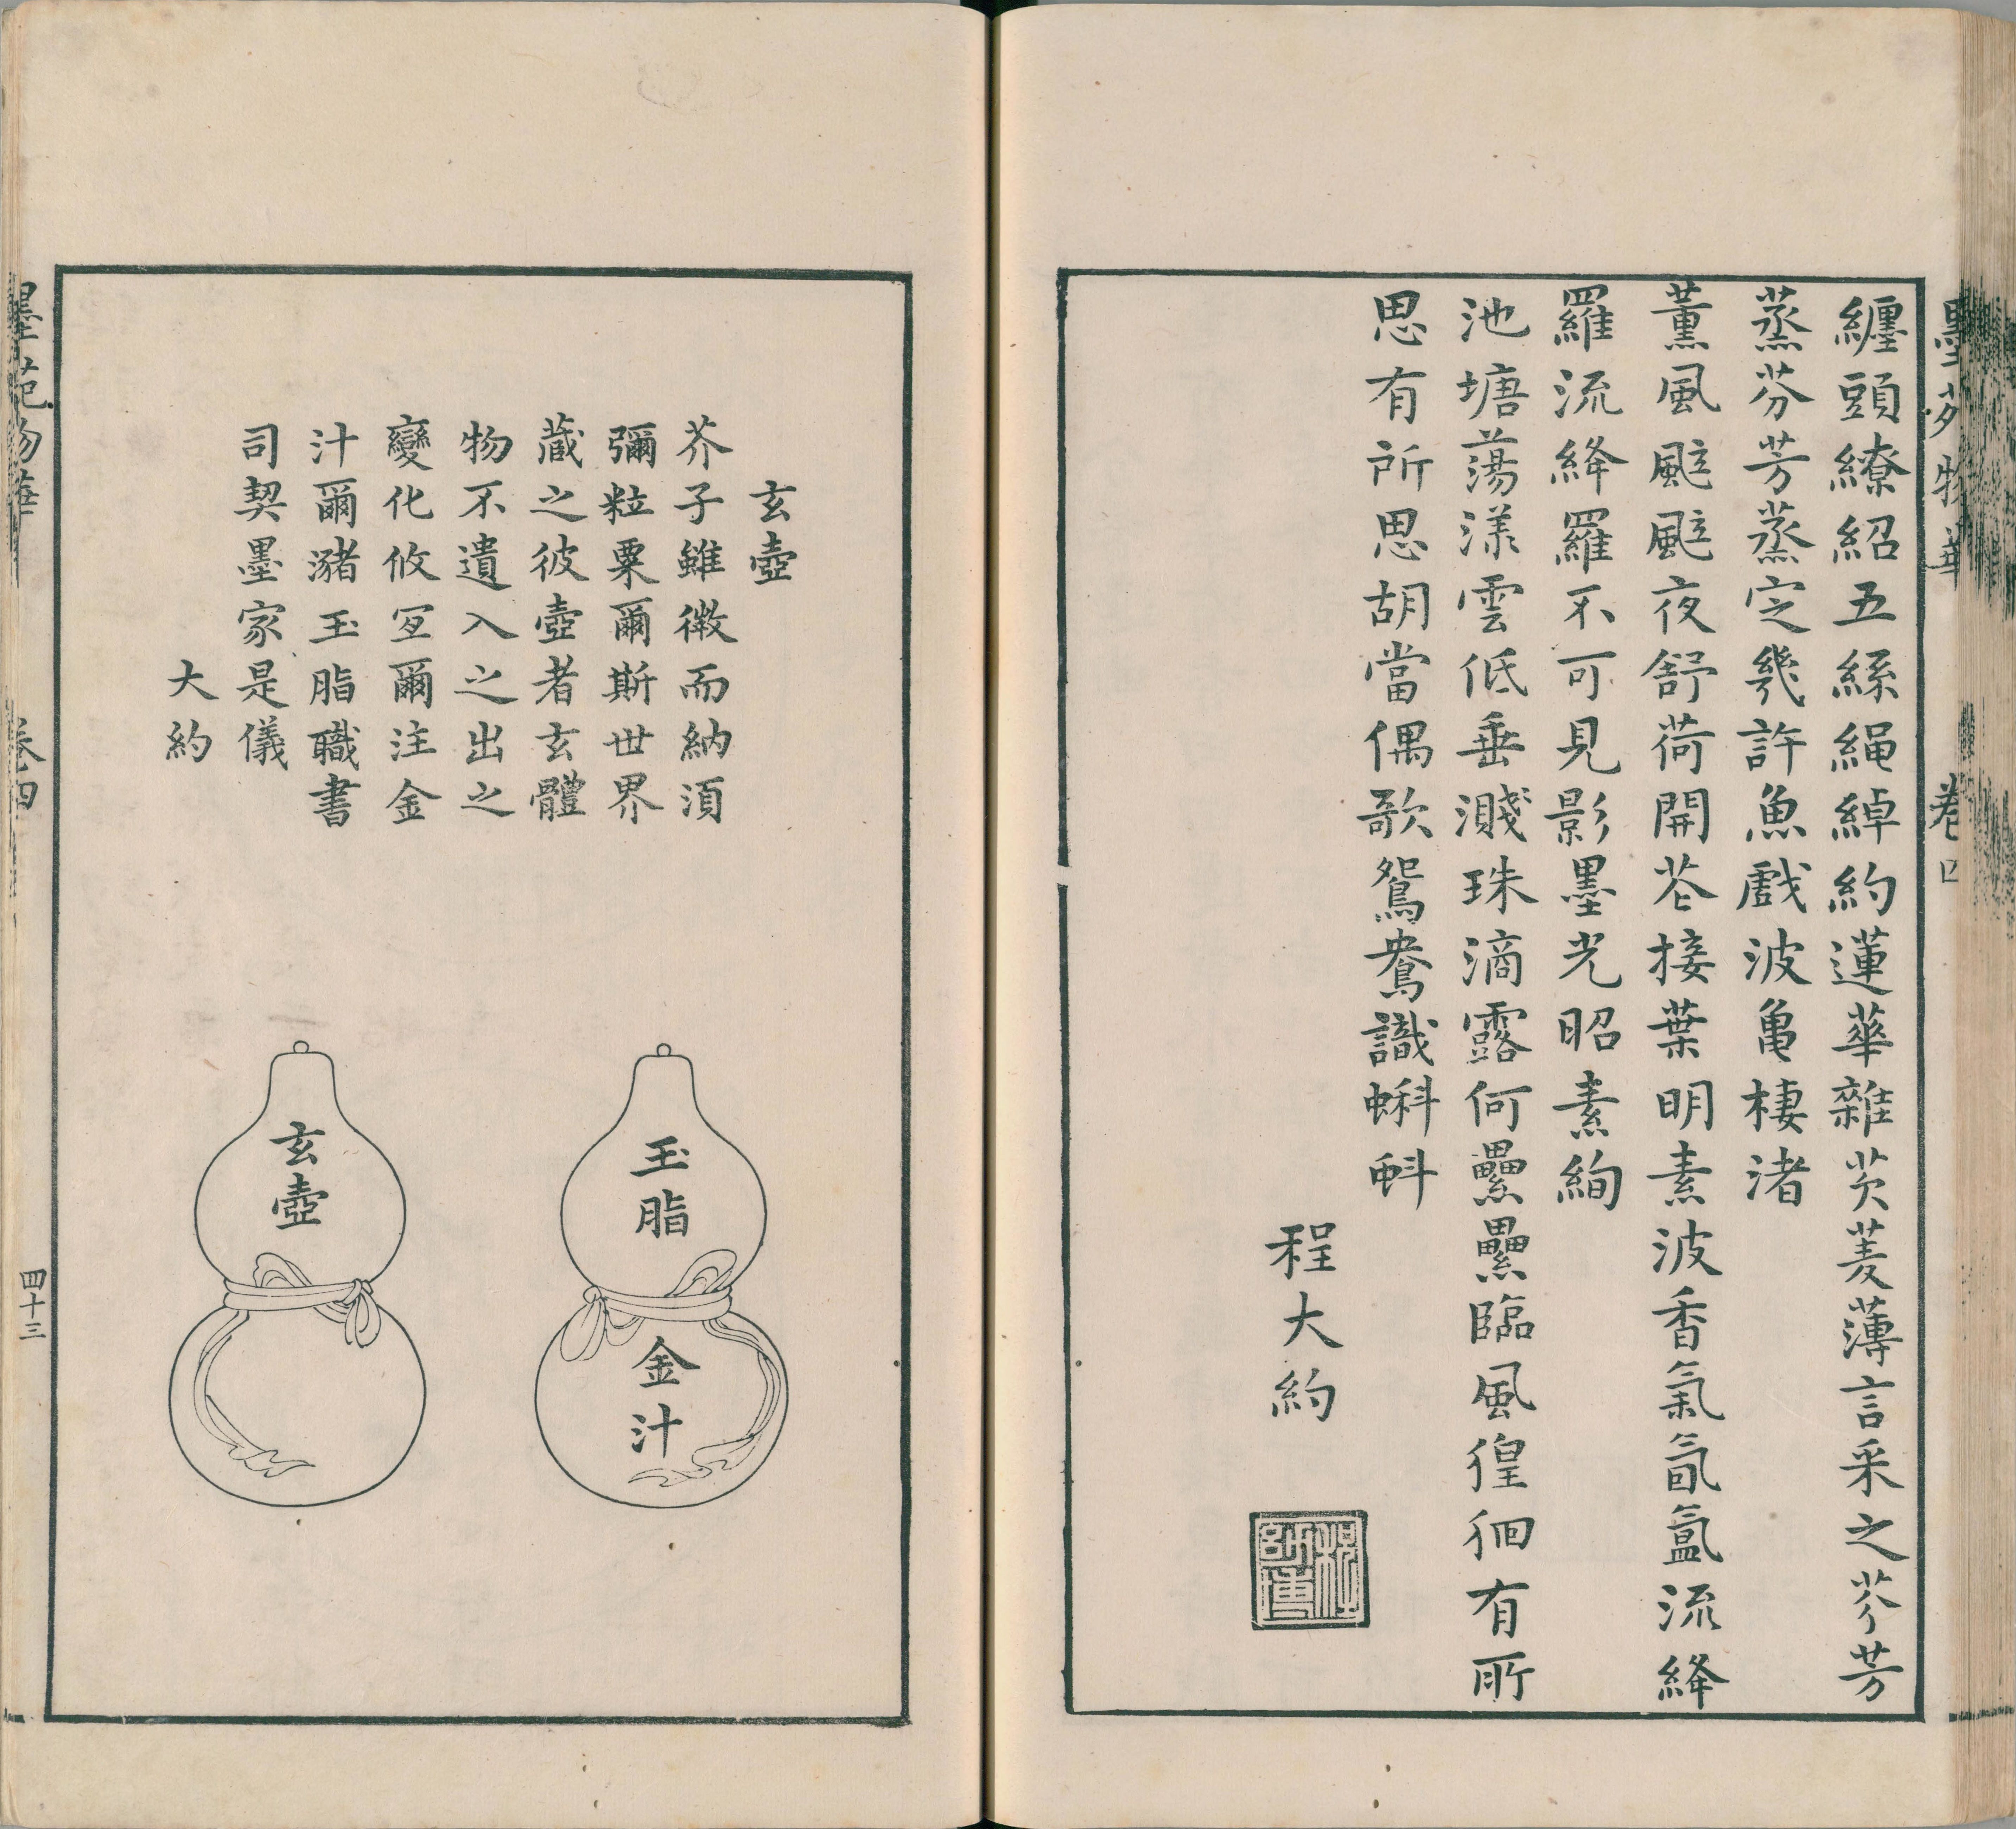 纏頭繚紹五絲繩綽約蓮華雜芡菱薄言采之芬芳
蒸芬芳蒸定幾許魚戲波龜棲渚
薰風颭颭夜舒荷開花接葉明素波香氣氤氳流絳
羅流絳羅不可見影墨光昭素絢
池塘蕩漾雲低垂濺珠滴露何纍纍臨風徨徊有所
思有所思胡當偶歌鴛鴦識蝌蚪
程大約
玄壺
芥子雖微而納湏
彌粒粟爾斯世界
藏之彼壺者玄體
物不遺入之出之
變化攸冝爾注金
汁爾瀦玉脂職書
司契墨家是儀
大約
玉脂
金汁
玄壺
墨苑物華
卷四
四十三